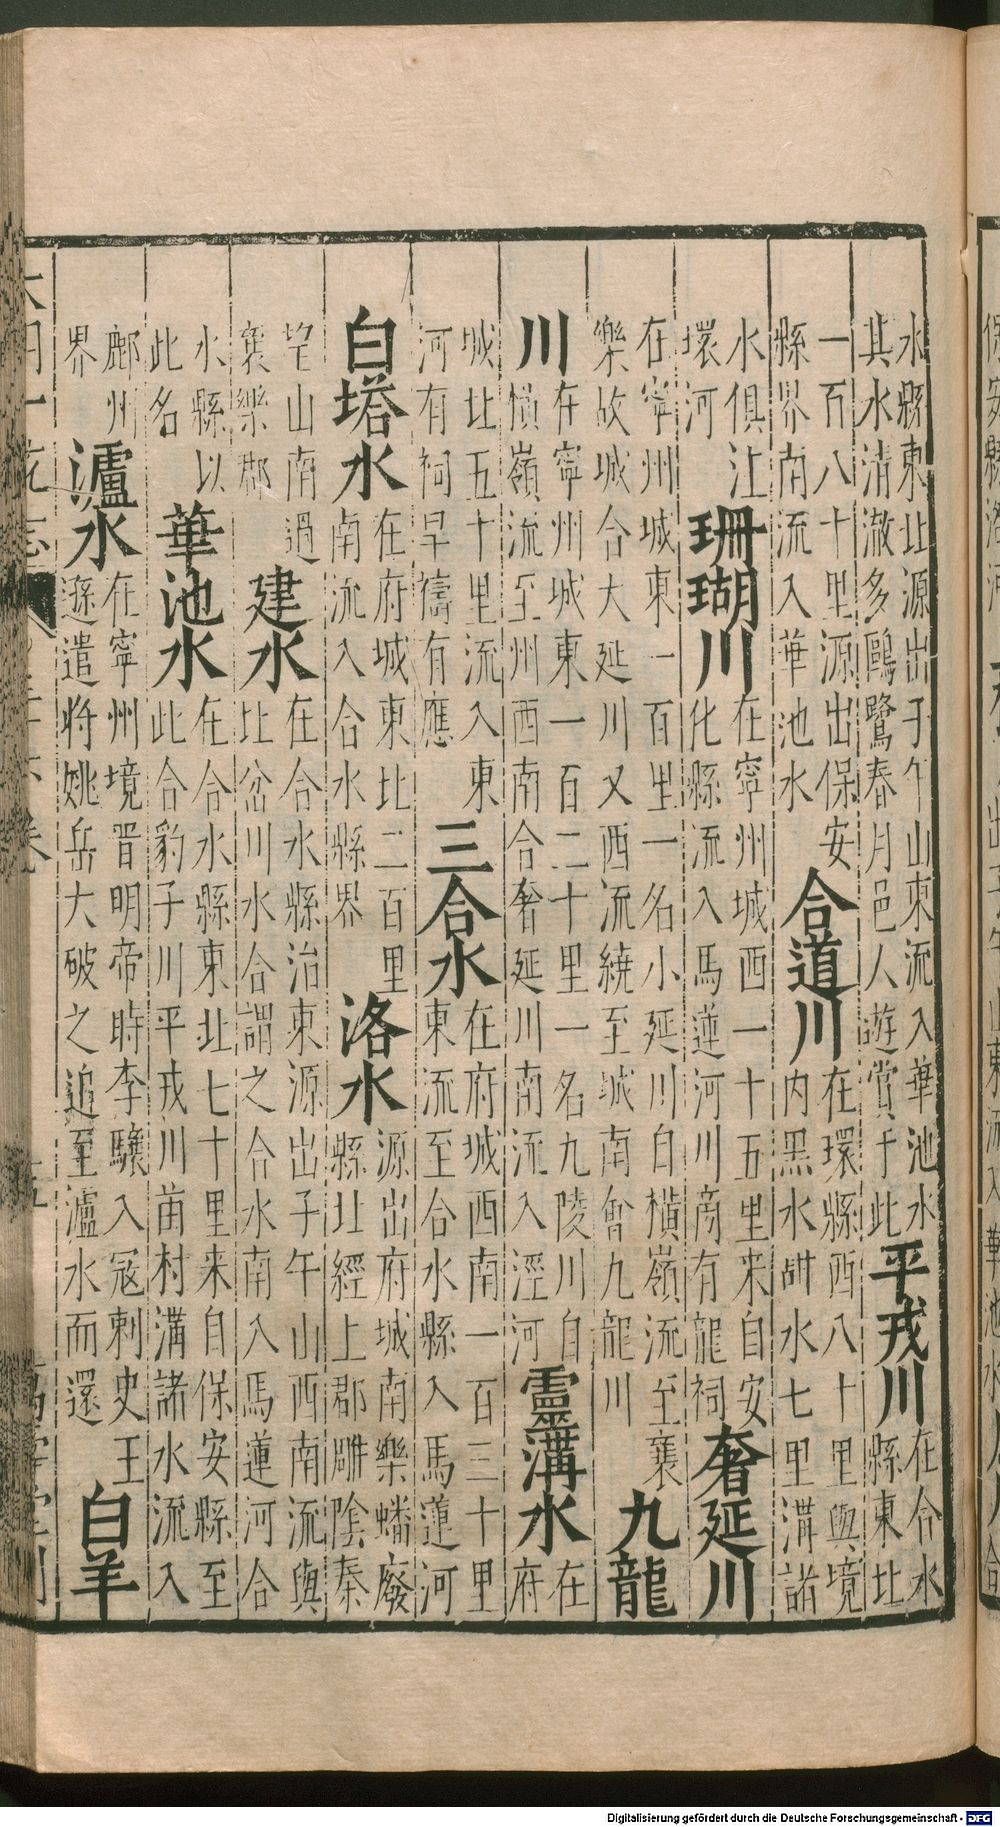 水縣東北源出子午山東流入華池水
其水清澈多鷗鷺春月邑人遊賞于此
平戎川
在合水
縣東北
一百八十里源出保安
縣界南流入華池水
合道川
在環縣西八十里與境
内黑水甜水七里溝諸
水俱注
環河
珊瑚川
在寧州城西一十五里来自安
化縣流入馬蓮河川旁有龍祠
奢延川
在寧州城東一百里一名小延川自橫嶺流至襄
樂故城合大延川又西流繞至城南會九龍川
九龍
川
在寧州城東一百二十里一名九陵川自
橫嶺流至州西南合奢延川南流入涇河
靈溝水
在
府
城北五十里流入東
河有祠旱禱有應
三合水
在府城西南一百三十里
東流至合水縣入馬蓮河
白塔水
在府城東北二百里
南流入合水縣界
洛水
源出府城南樂蟠廢
縣北經上郡雕陰秦
山南過
襄樂郡
建水
在合水縣治東源出子午山西南流與
北岔川水合謂之合水南入馬蓮河合
水縣以
此名
華池水
在合水縣東北七十里来自保安縣至
此合豹子川平戎川苗村溝諸水流入
鄜州
界
瀘水
在寧州境晋明帝時李驤入冦刺史王
遜遣将姚岳大破之追至瀘水而還
白羊
Digitalisierung gefördert durch die Deutsche Forschungsgemeinschaft - DFG